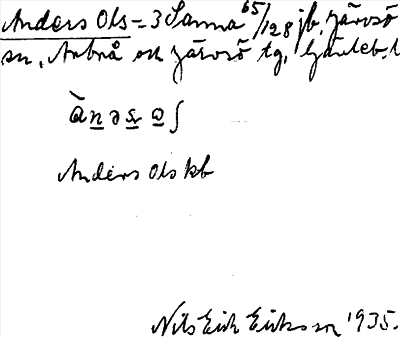 Anders Ols = 3 Sanna 65/128 jb. Järvsö
sn, Arbrå och Järvsö tg, Gävleb. l
ànəs̠ ə̠ʃ
Anders Ols kb
Nils Erik Eriksson 1935.